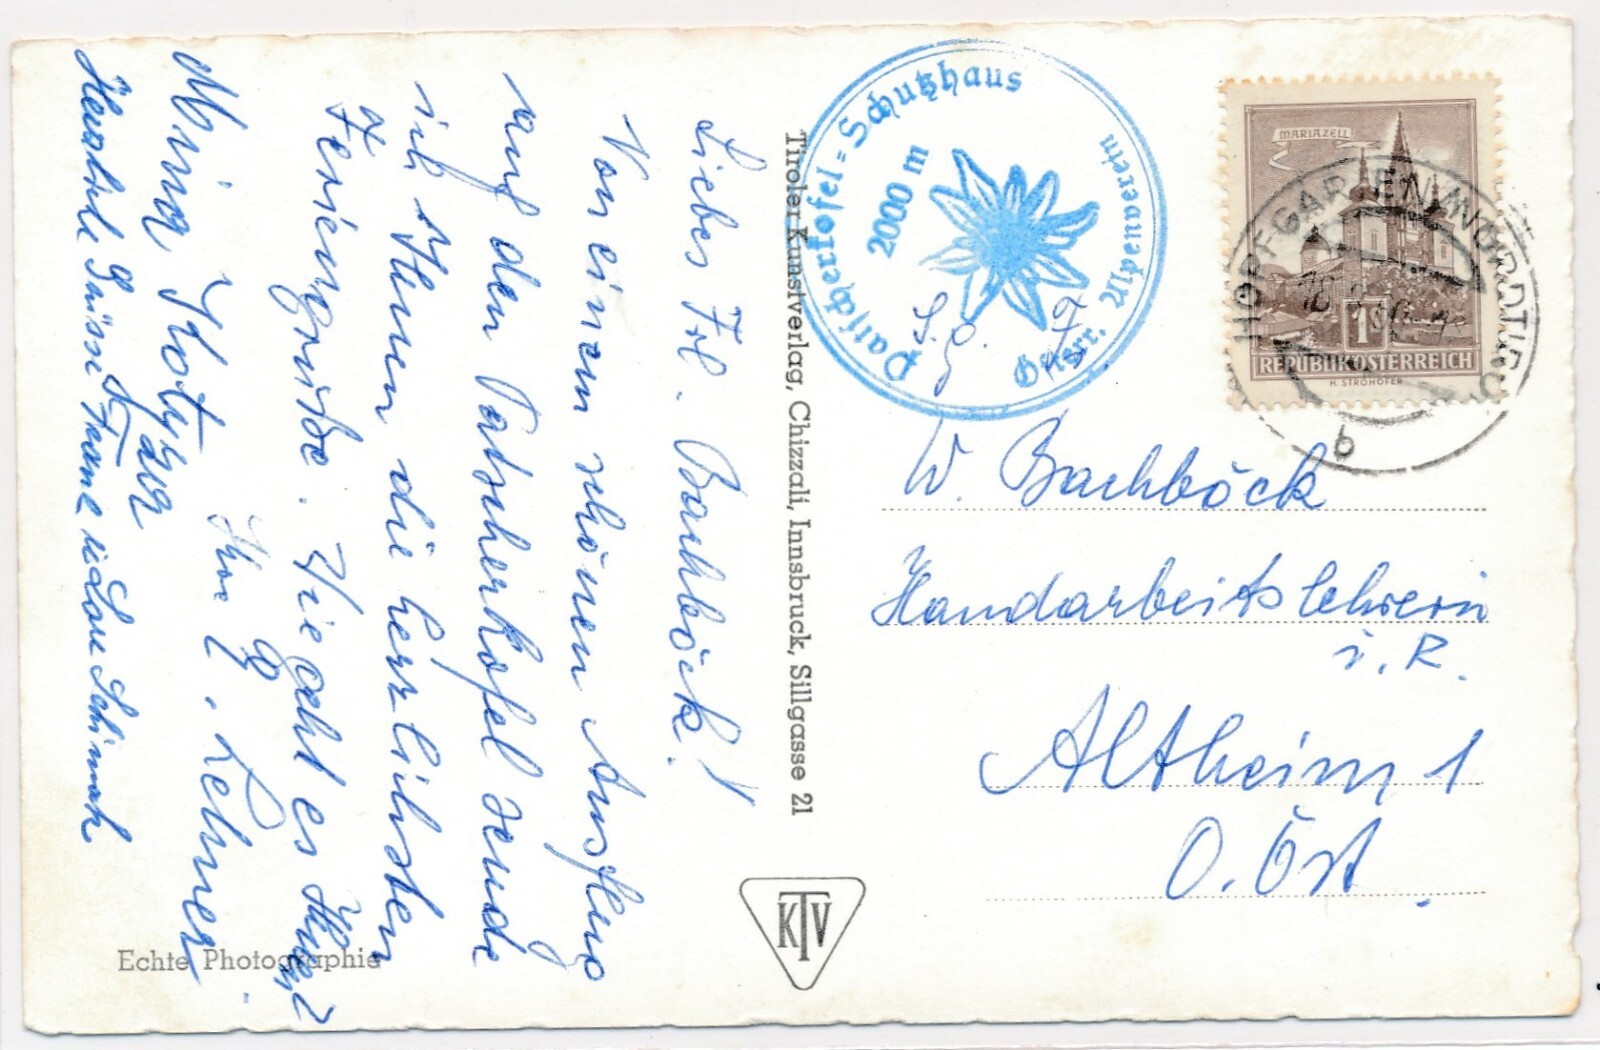 Liebes Frl. Bachböck!
Von einem schönen Ausflug
auf den Patscherkofel sende
ich Ihnen die herzlichsten
Feriengrüße. Wie geht es Ihnen?
Ihre G. Lehner
Mina Kotyza
Herzliche Grüsse Franz u. Lore Schimak
Echte Photographie
Tiroler Kunstverlag, Chizzali, Innsbruck, Sillgasse 21
KTV
Patscherkofel=Schutzhaus
2000 m
Österr. Alpenverein
S. g. F
MARIAZELL
1
REPUBLIK ÖSTERREICH
H. STROHOFER
HOPFGARTEN IM NORDTIROL
b
W. Bachböck
Handarbeitslehrerin
i. R.
Altheim 1
O. Öst.